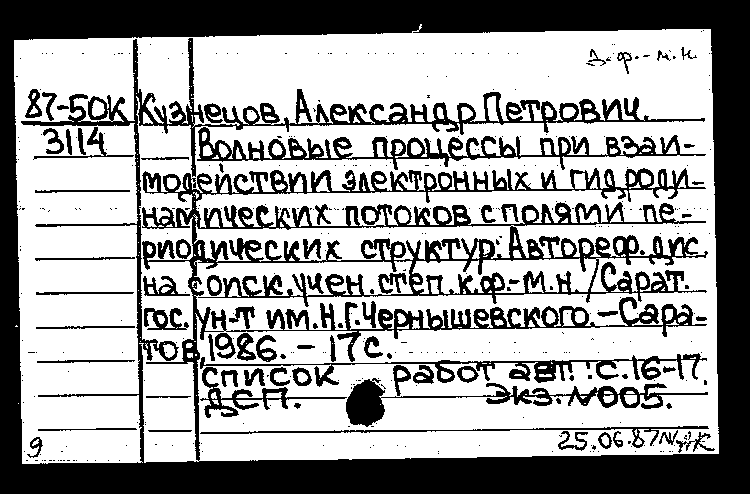 Д-ф.-м.н.
87-50К Кузнецов, Александр Петрович.
3114 Волновые процессы при взаи-
модействии электронных и гидроди-
намических потоков с полями пе-
риодических структур: Автореф. дис.
на соиск. учен. степ. к.ф.-м.н. /Сарат.
гос. ун-т им. Н.Г. Чернышевского. – Сара-
тов, 1986. – 17 с.
Список работ авт.: с. 16-17.
ДСП. Экз. №005.
9 25.06.87